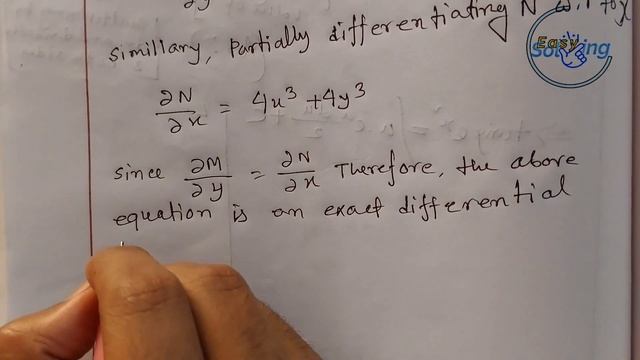 ∂y
simillary, partially differentiating N w.r.to x
∂N/∂x = 4x³ + 4y³
since ∂M/∂y = ∂N/∂x Therefore, the above
equation is an exact differential
Easy
Solving